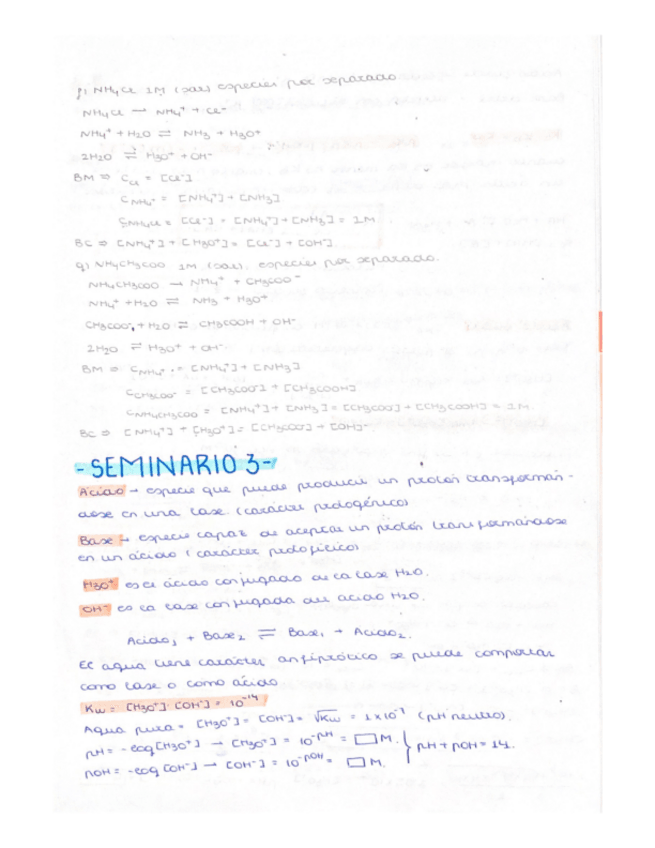 f) NH4Cl 1M (sal) especies por separado
NH4Cl → NH4+ + Cl-
NH4+ + H2O ⇌ NH3 + H3O+
2H2O ⇌ H3O+ + OH-
BM ⇒ CCl = [Cl-]
CNH4+ = [NH4+] + [NH3]
CNH4Cl = [Cl-] = [NH4+] + [NH3] = 1M.
BC ⇒ [NH4+] + [H3O+] = [Cl-] + [OH-]
g) NH4CH3COO 1M (sal). especies por separado.
NH4CH3COO → NH4+ + CH3COO-
NH4+ + H2O ⇌ NH3 + H3O+
CH3COO- + H2O ⇌ CH3COOH + OH-
2H2O ⇌ H3O+ + OH-
BM ⇒ CNH4+ = [NH4+] + [NH3]
CCH3COO- = [CH3COO-] + [CH3COOH]
CNH4CH3COO = [NH4+] + [NH3] = [CH3COO-] + [CH3COOH] = 1M.
BC ⇒ [NH4+] + [H3O+] = [CH3COO-] + [OH]-
-SEMINARIO 3-
Ácido → especie que puede producir un protón transformán-
dose en una base (carácter protogénico)
Base → especie capaz de aceptar un protón transformándose
en un ácido (carácter protofílico)
H3O+ es el ácido conjugado de la base H2O.
OH- es la base conjugada del ácido H2O.
Ácido1 + Base2 ⇌ Base1 + Ácido2.
El agua tiene carácter anfiprótico se puede comportar
como base o como ácido
Kw = [H3O+]·[OH-] = 10^-14
Agua pura = [H3O+] = [OH-] = √Kw = 1x10^-7 (pH neutro).
pH = -log [H3O+] → [H3O+] = 10^-pH = □ M. } pH + pOH = 14.
pOH = -log [OH-] → [OH-] = 10^-pOH = □ M.